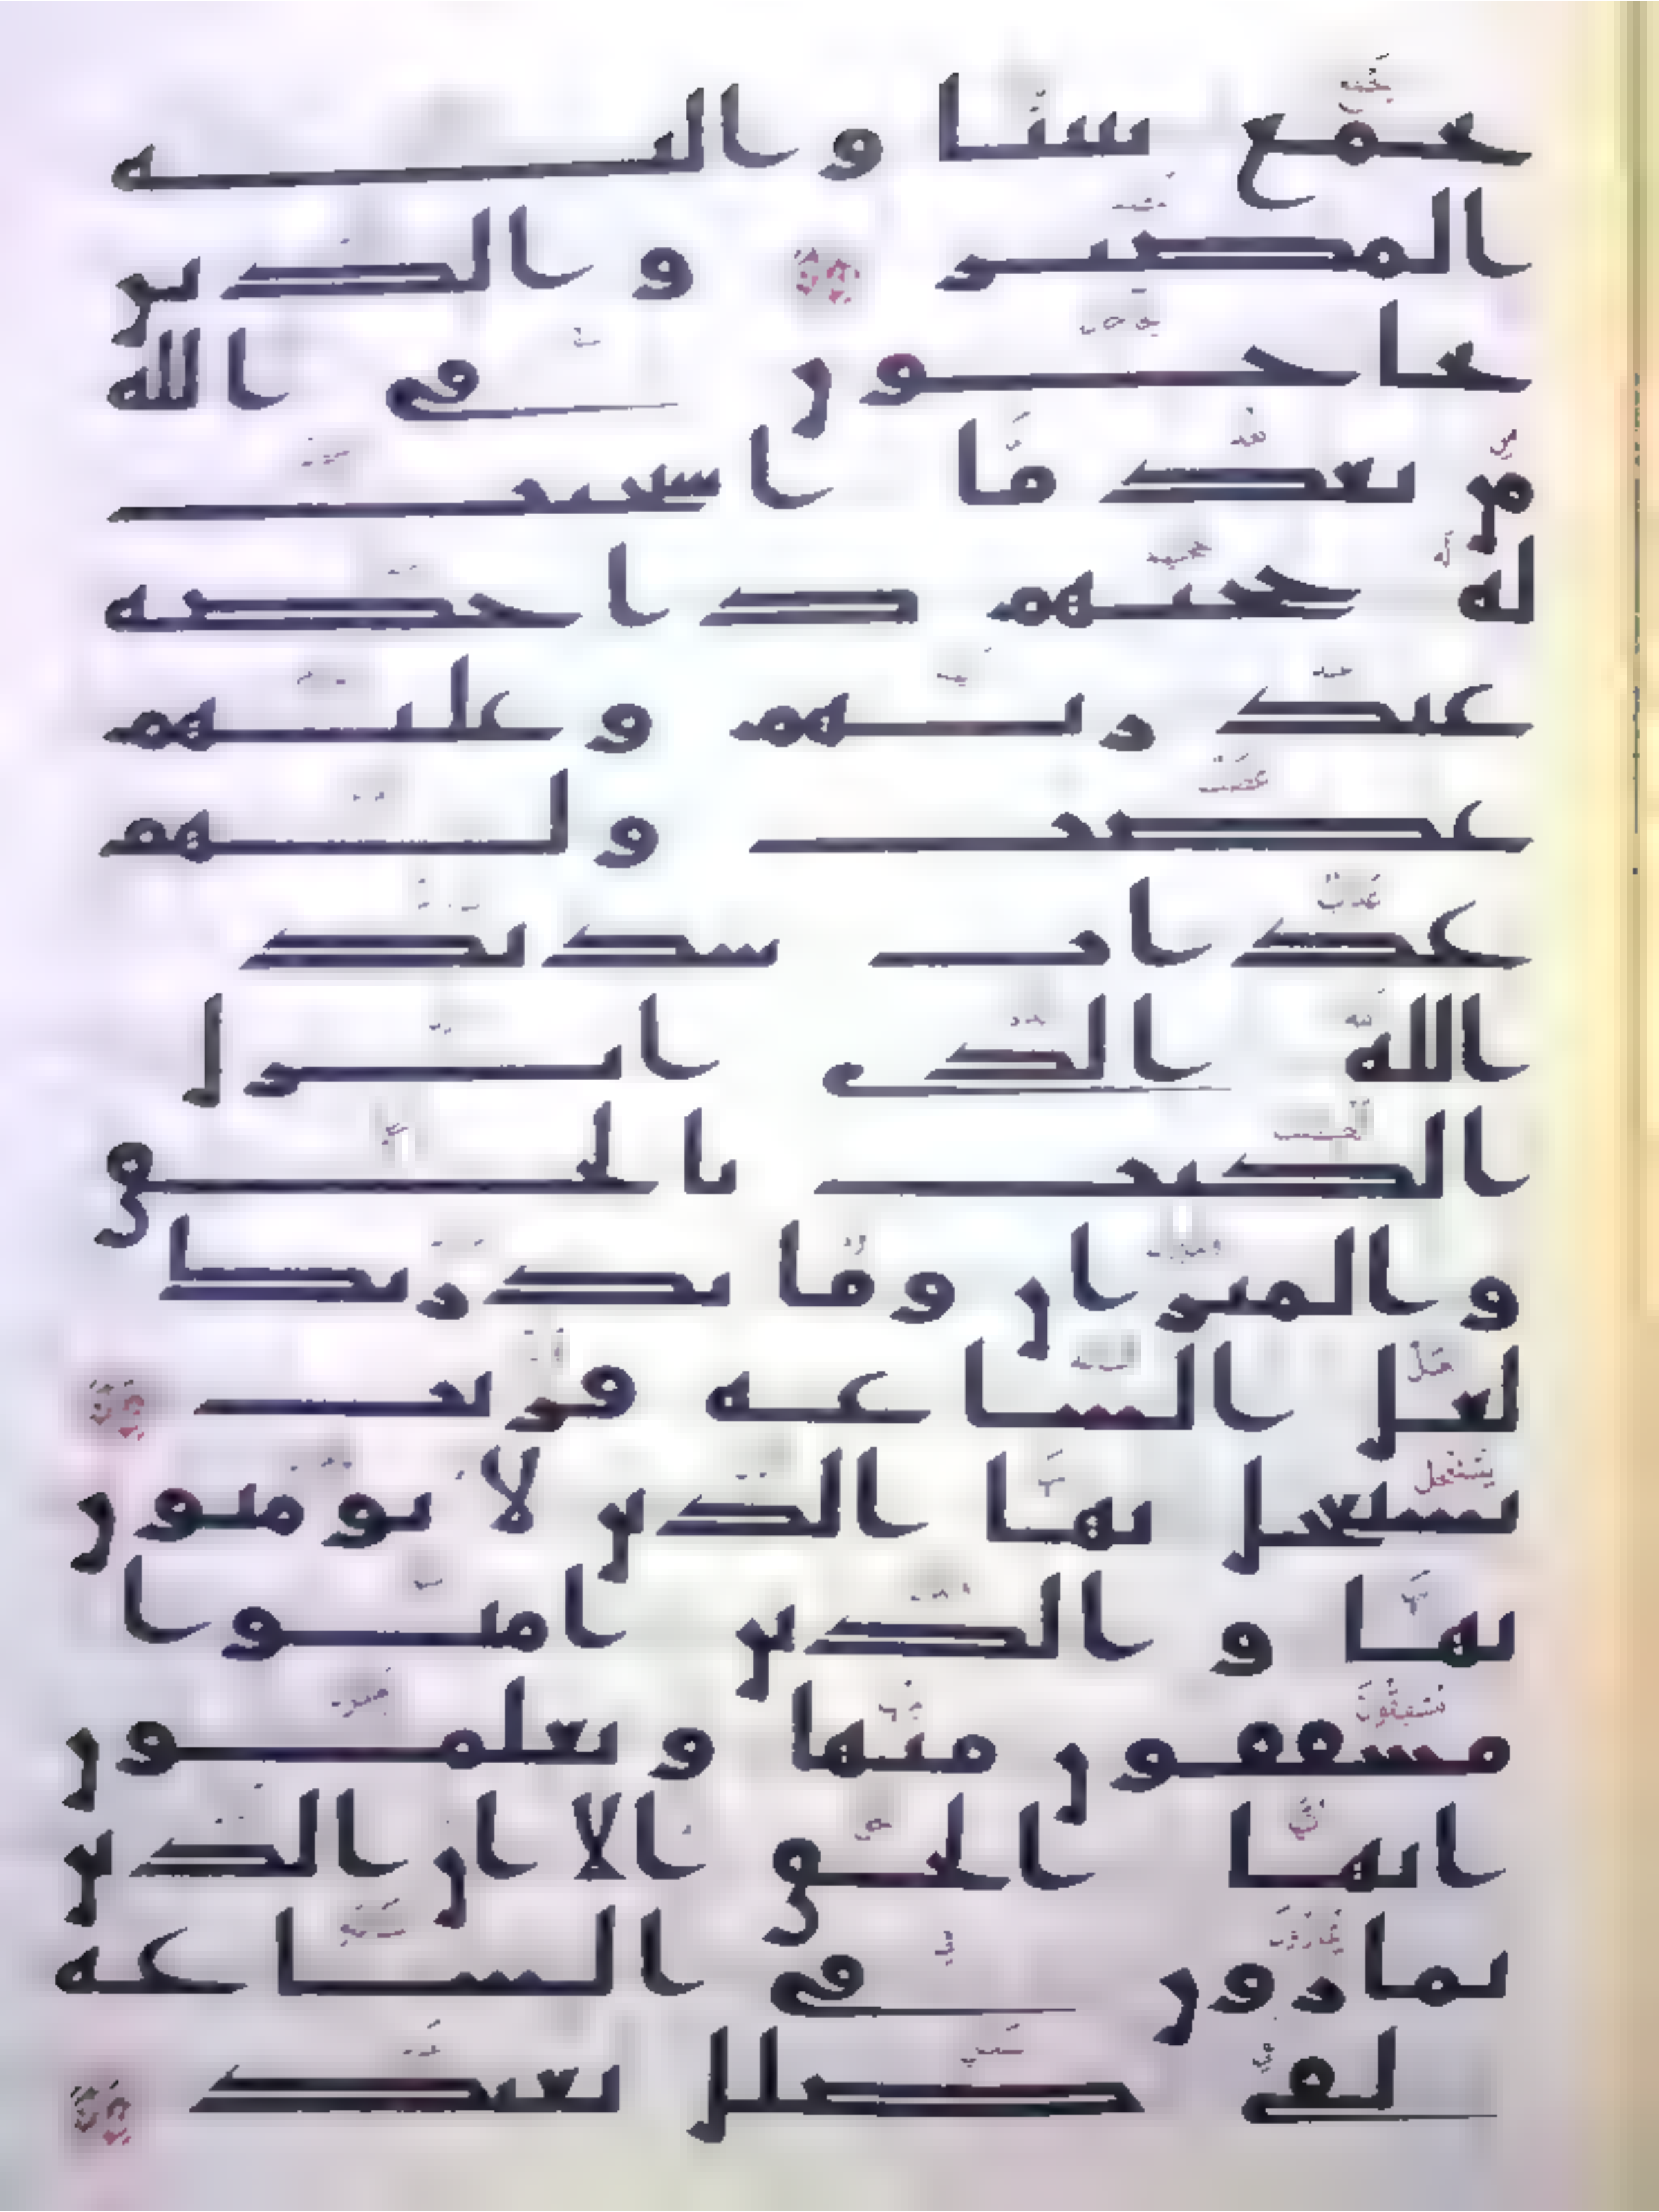 يجمع بيننا واليه
المصير والذين
يحاجون في الله
من بعد ما استجيب
له حجتهم داحضة
عند ربهم وعليهم
غضب ولهم
عذاب شديد
الله الذي انزل
الكتب بالحق
والميزان وما يدريك
لعل الساعة قريب
يستعجل بها الذين لا يؤمنون
بها والذين امنوا
مشفقون منها ويعلمون
انها الحق الا ان الذين
يمارون في الساعة
لفي ضلل بعيد